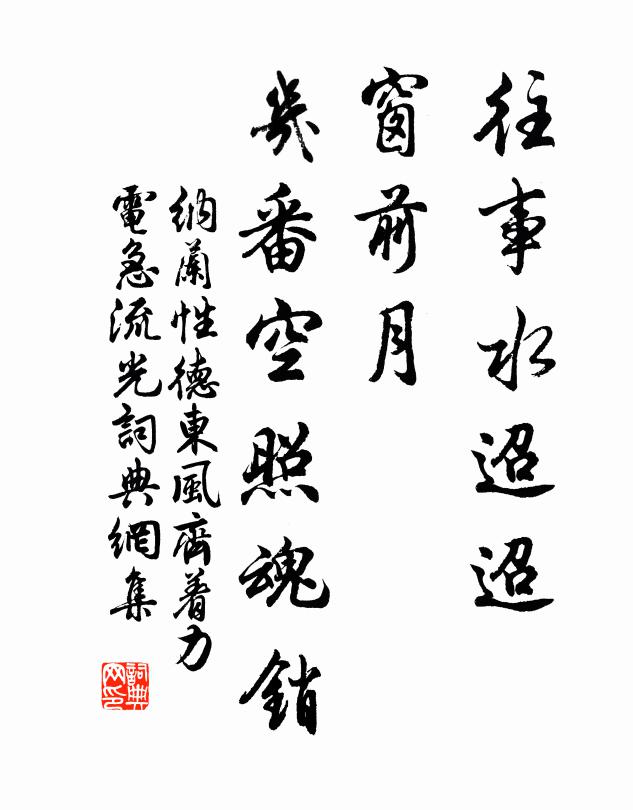 往事水迢迢
窗前月
幾番空照魂銷
納蘭性德東風齊着力
電急流光詞典網集
詞典
网印